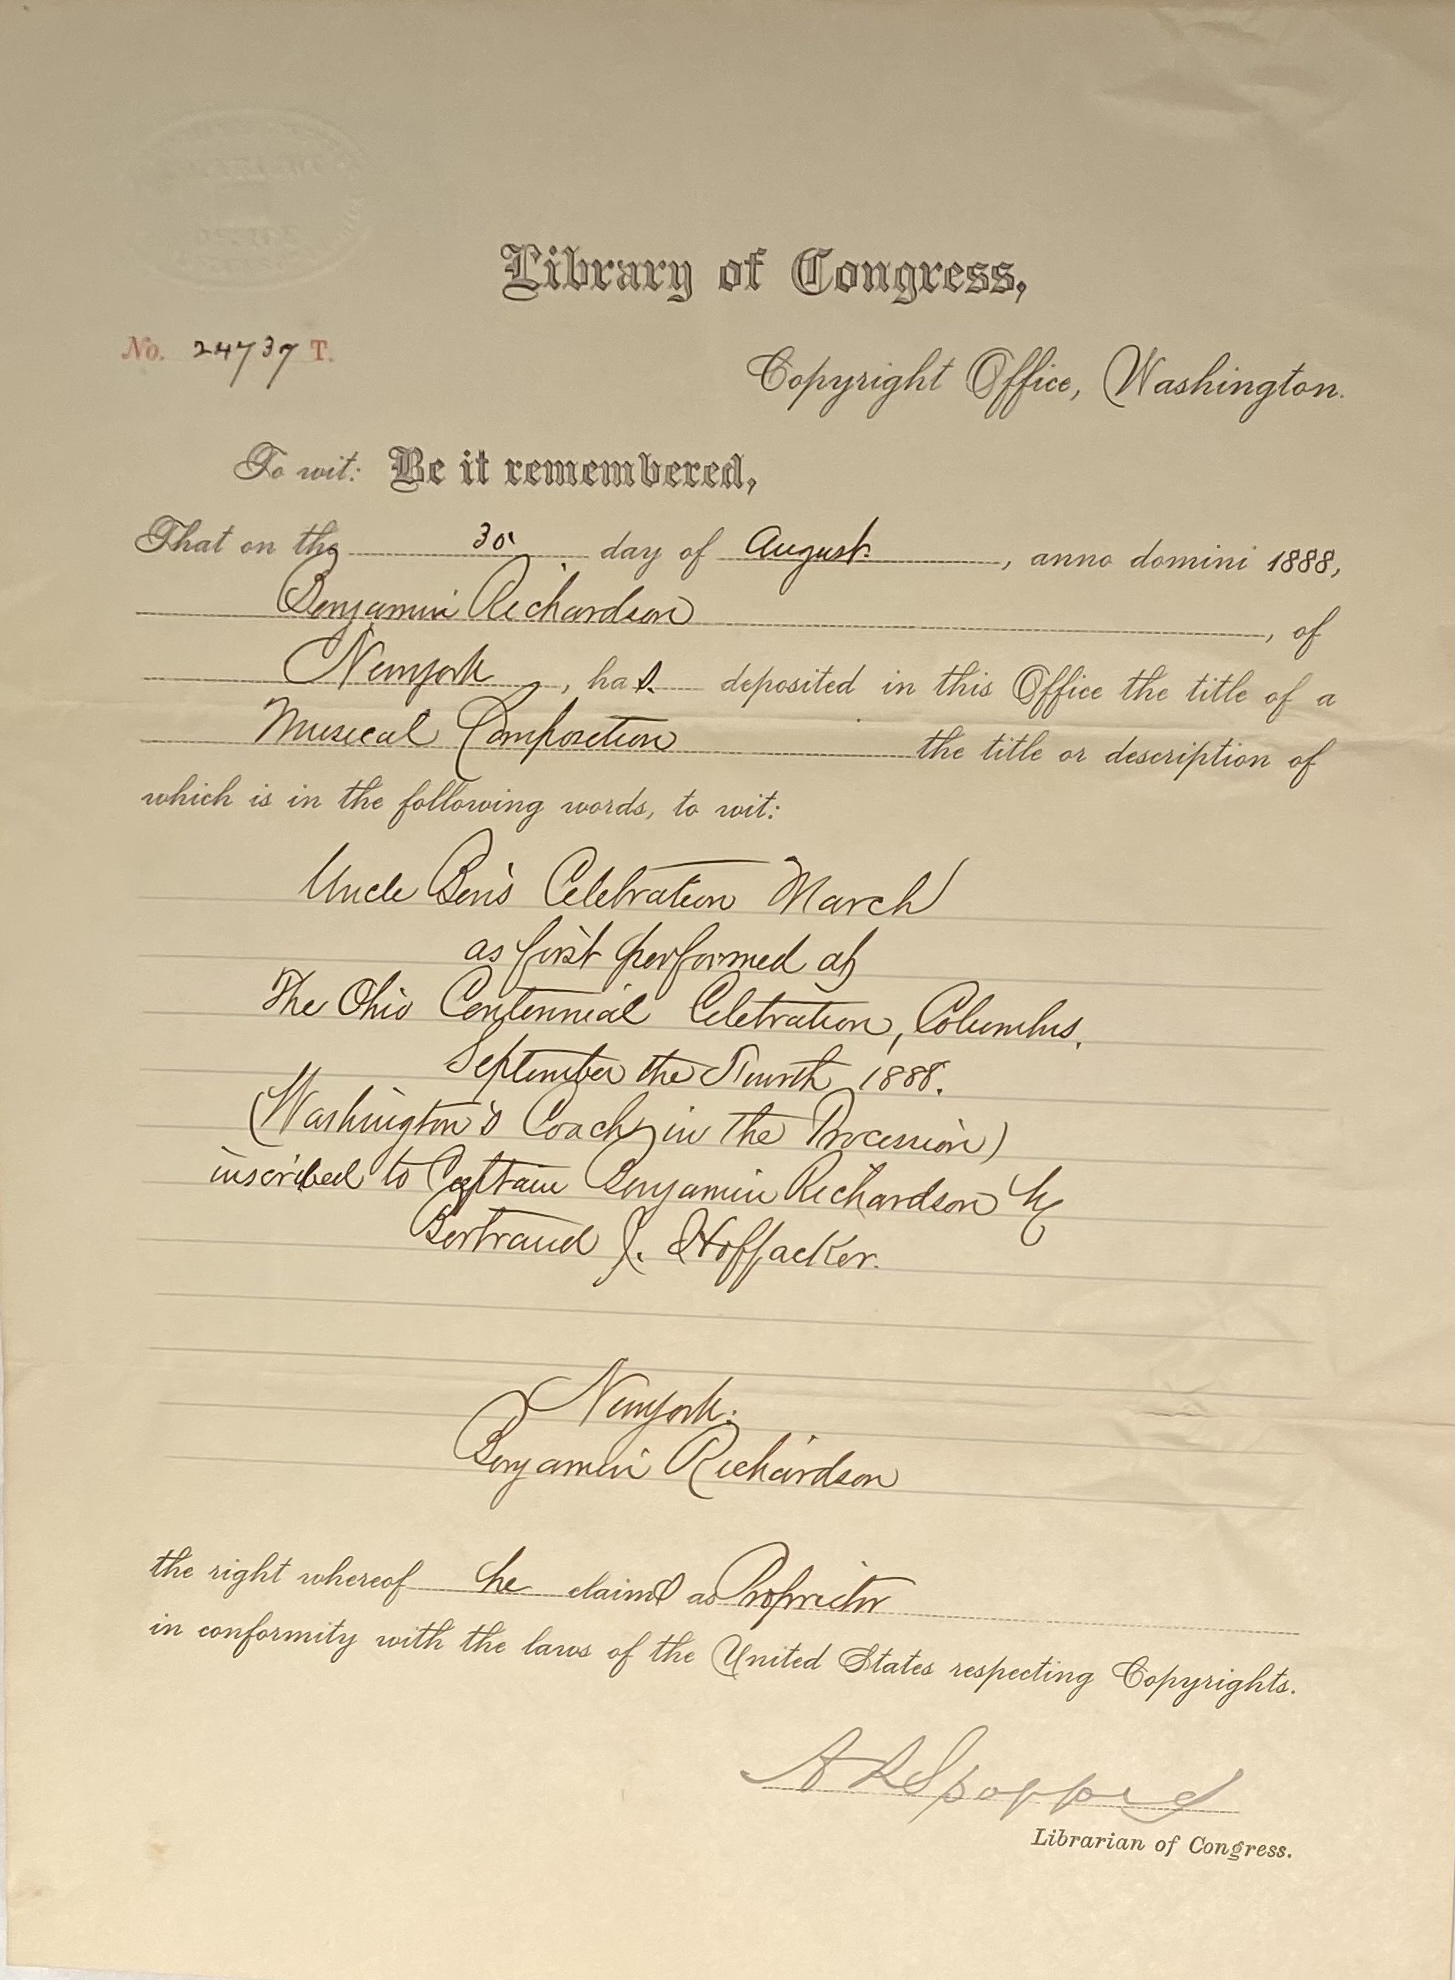 Library of Congress,
No. 24737 T.
Copyright Office, Washington.
To wit: Be it remembered,
That on the 30 day of August, anno domini 1888,
Benjamin Richardson, of
New York, has deposited in this Office the title of a
Musical Composition the title or description of
which is in the following words, to wit:
Uncle Ben's Celebration March
as first performed at
The Ohio Centennial Celebration, Columbus.
September the Fourth, 1888.
(Washington's Coach in the Procession)
inscribed to Captain Benjamin Richardson by
Bertrand J. Hoffacker.
New York.
Benjamin Richardson
the right whereof he claims as Proprietor
in conformity with the laws of the United States respecting Copyrights.
A R Spofford
Librarian of Congress.